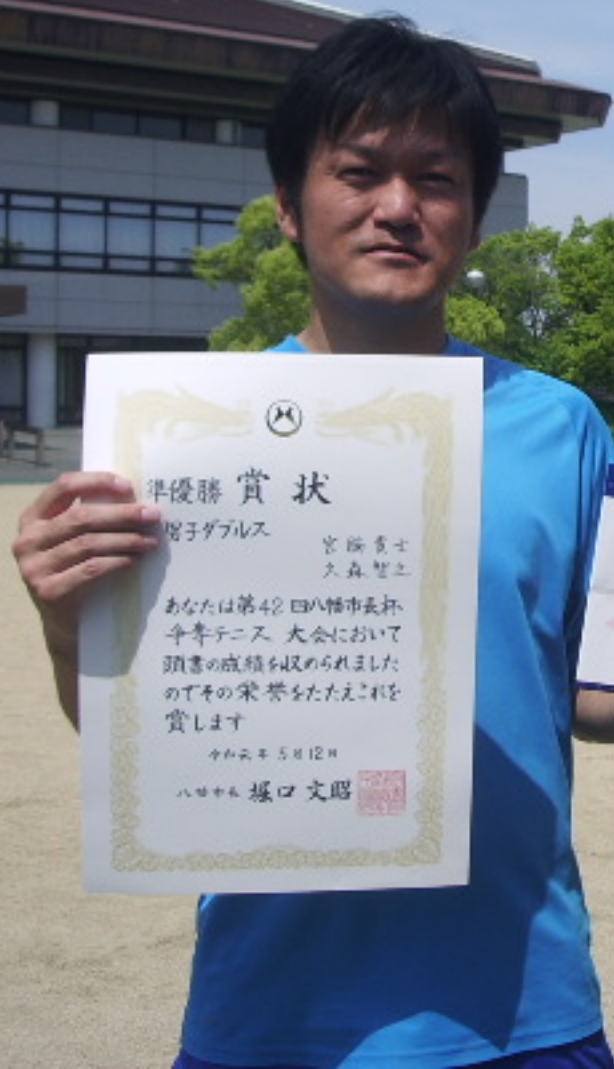 準優勝 賞状
男子ダブルス
宮脇貴士
久森智之
あなたは第42回八幡市長杯
争奪テニス 大会において
頭書の成績を収められました
のでその栄誉をたたえこれを
賞します
令和元年5月12日
八幡市長 堀口文昭